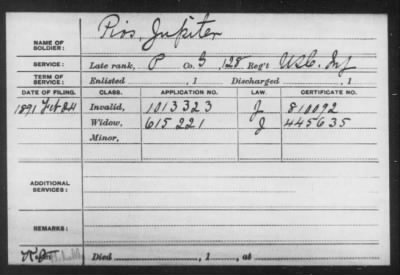 Rios, Jupiter
NAME OF SOLDIER:
SERVICE: Late rank, P Co. G, 128 Reg't U.S.C. Inf
TERM OF SERVICE: Enlisted , 1 Discharged , 1
DATE OF FILING. CLASS. APPLICATION NO. LAW. CERTIFICATE NO.
1891 24 Invalid, 1013323 J 810092
Widow, 615221 J 445635
Minor,
ADDITIONAL SERVICES:
REMARKS:
Died , 1 , at